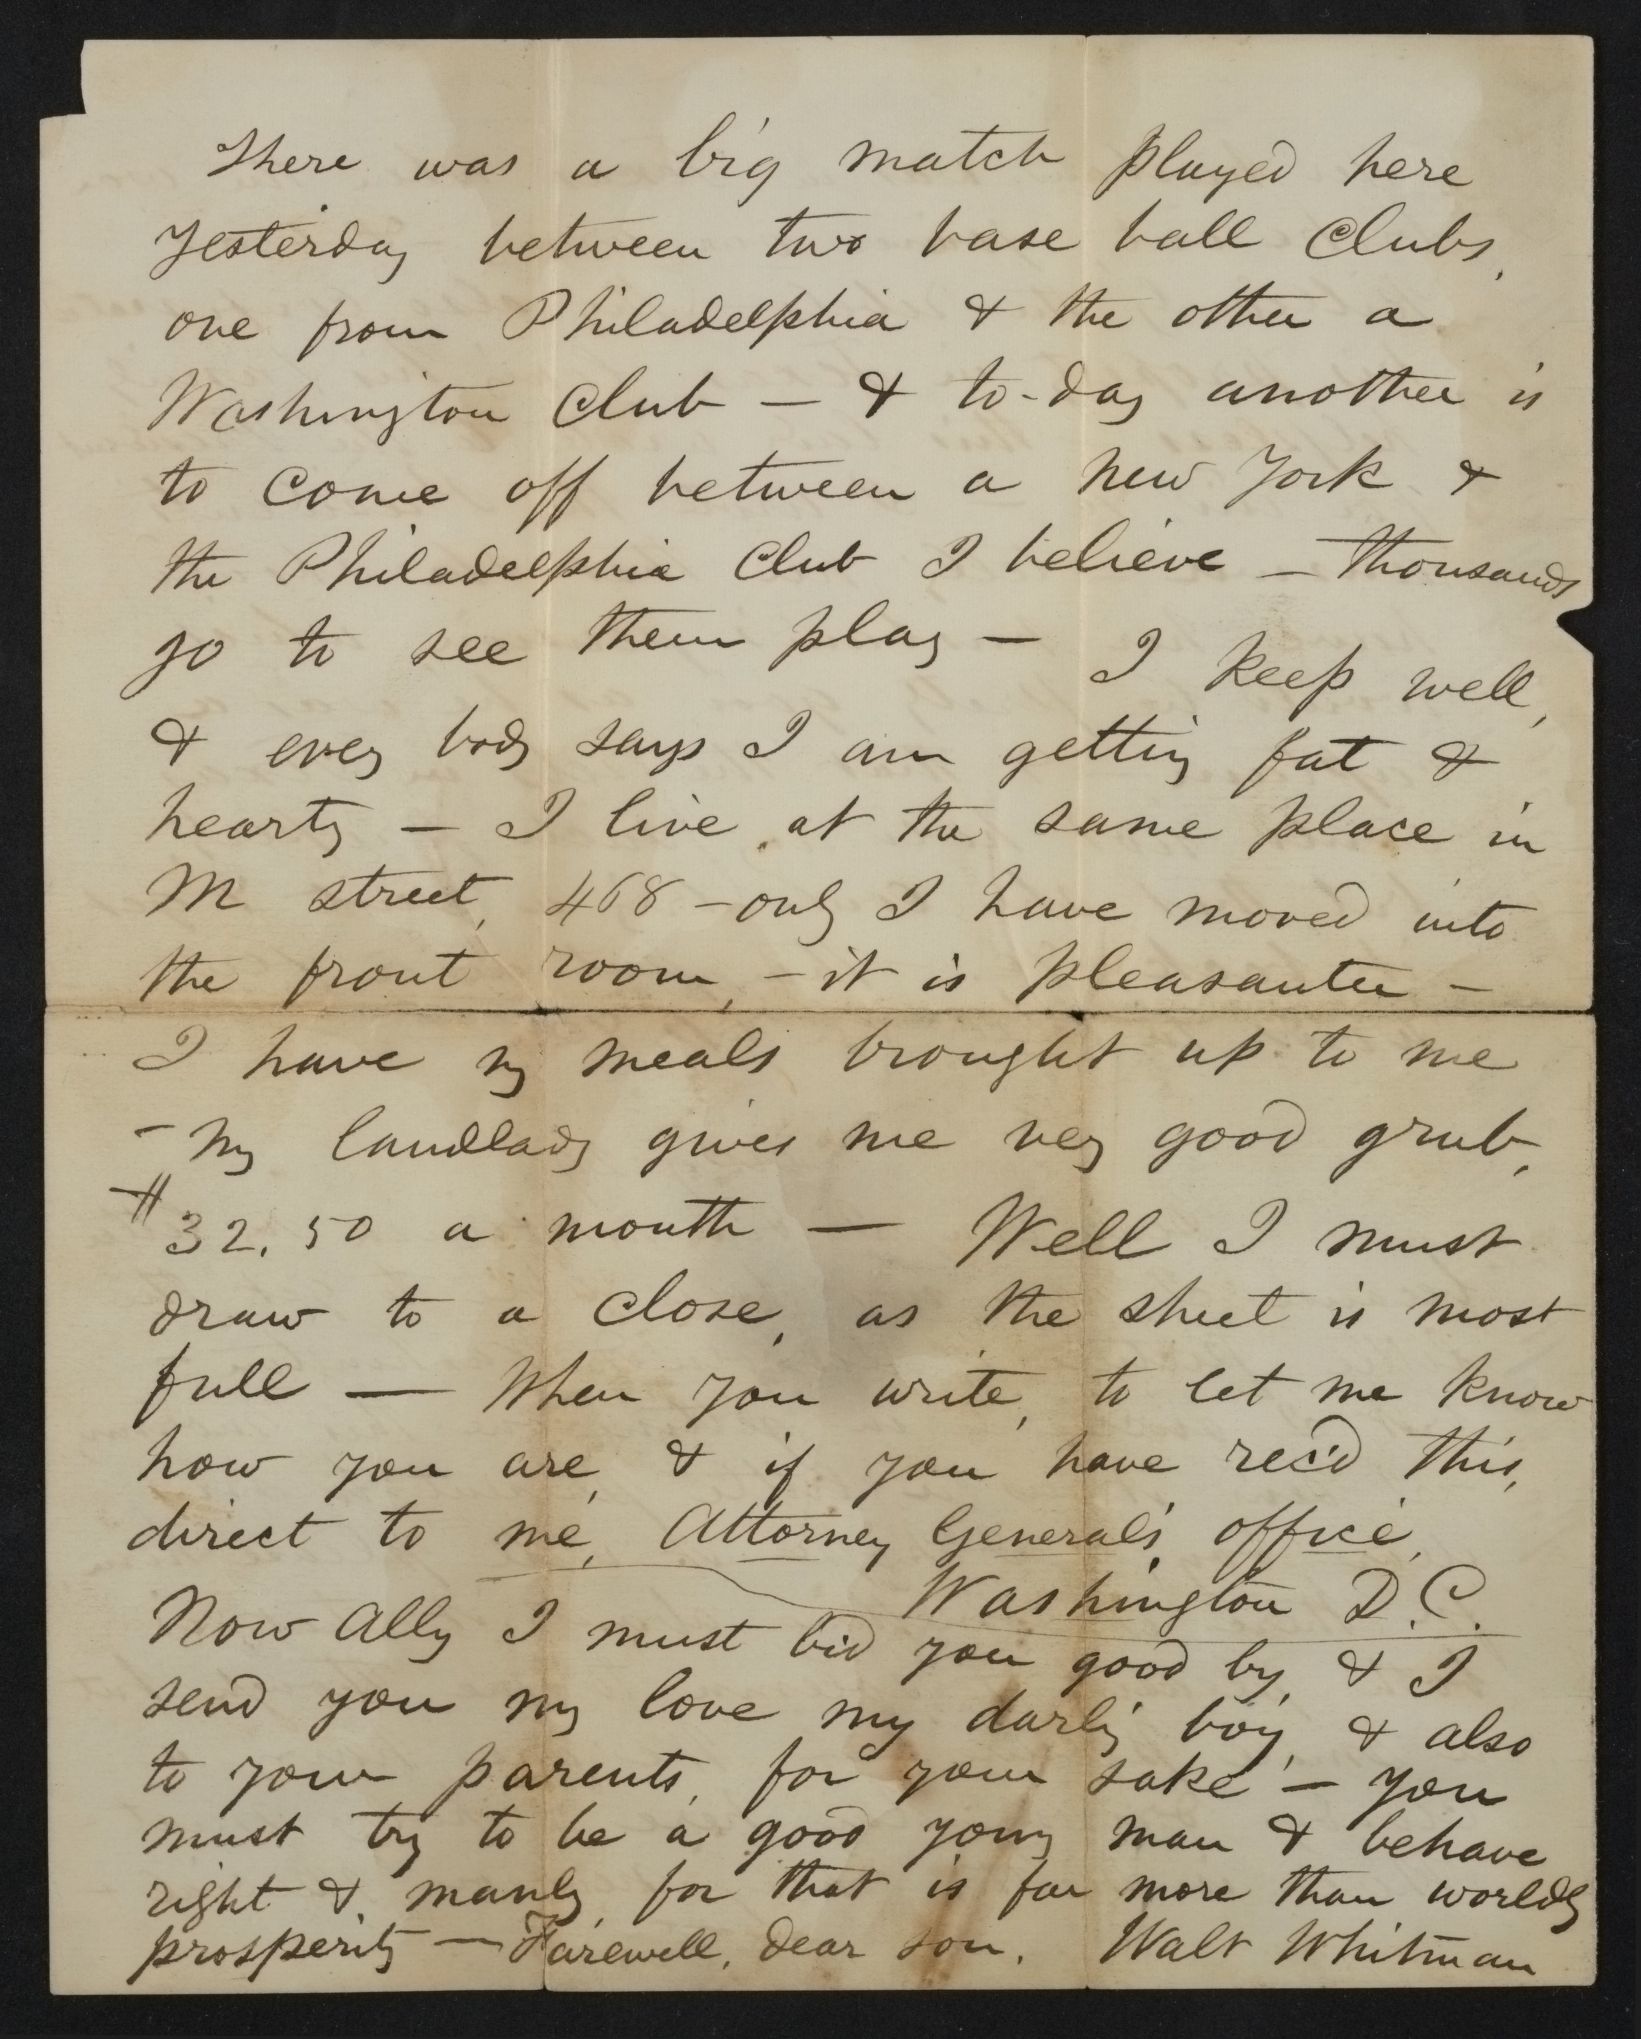 There was a big match played here
yesterday between two base ball clubs,
one from Philadelphia & the other a
Washington club — & to-day another is
to come off between a New York &
the Philadelphia club I believe — thousands
go to see them play — I keep well,
& every body says I am getting fat &
hearty — I live at the same place in
M street, 468 — only I have moved into
the front room, — it is pleasanter —
I have my meals brought up to me
— my landlady gives me very good grub,
$32.50 a month — Well I must
draw to a close, as the sheet is most
full — When you write, to let me know
how you are, & if you have rec'd this,
direct to me, Attorney General's office,
Washington D.C.
Now Ally I must bid you good by, & I
send you my love my darling boy, & also
to your parents, for your sake — you
must try to be a good young man & behave
right & manly, for that is far more than worldly
prosperity — Farewell, dear son. Walt Whitman